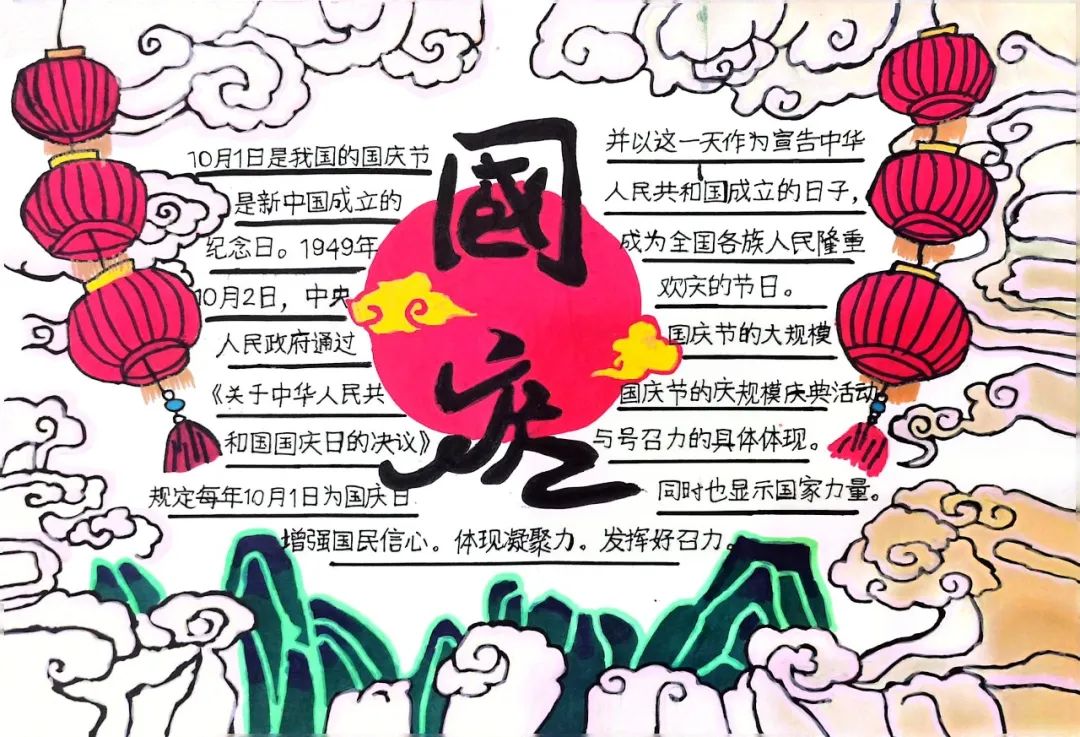 國慶
10月1日是我国的国庆节
是新中国成立的
纪念日。1949年
10月2日，中央
人民政府通过
《关于中华人民共
和国国庆日的决议》
规定每年10月1日为国庆日
并以这一天作为宣告中华
人民共和国成立的日子，
成为全国各族人民隆重
欢庆的节日。
国庆节的大规模
国庆节的庆规模庆典活动
与号召力的具体体现。
同时也显示国家力量。
增强国民信心。体现凝聚力。发挥好召力。